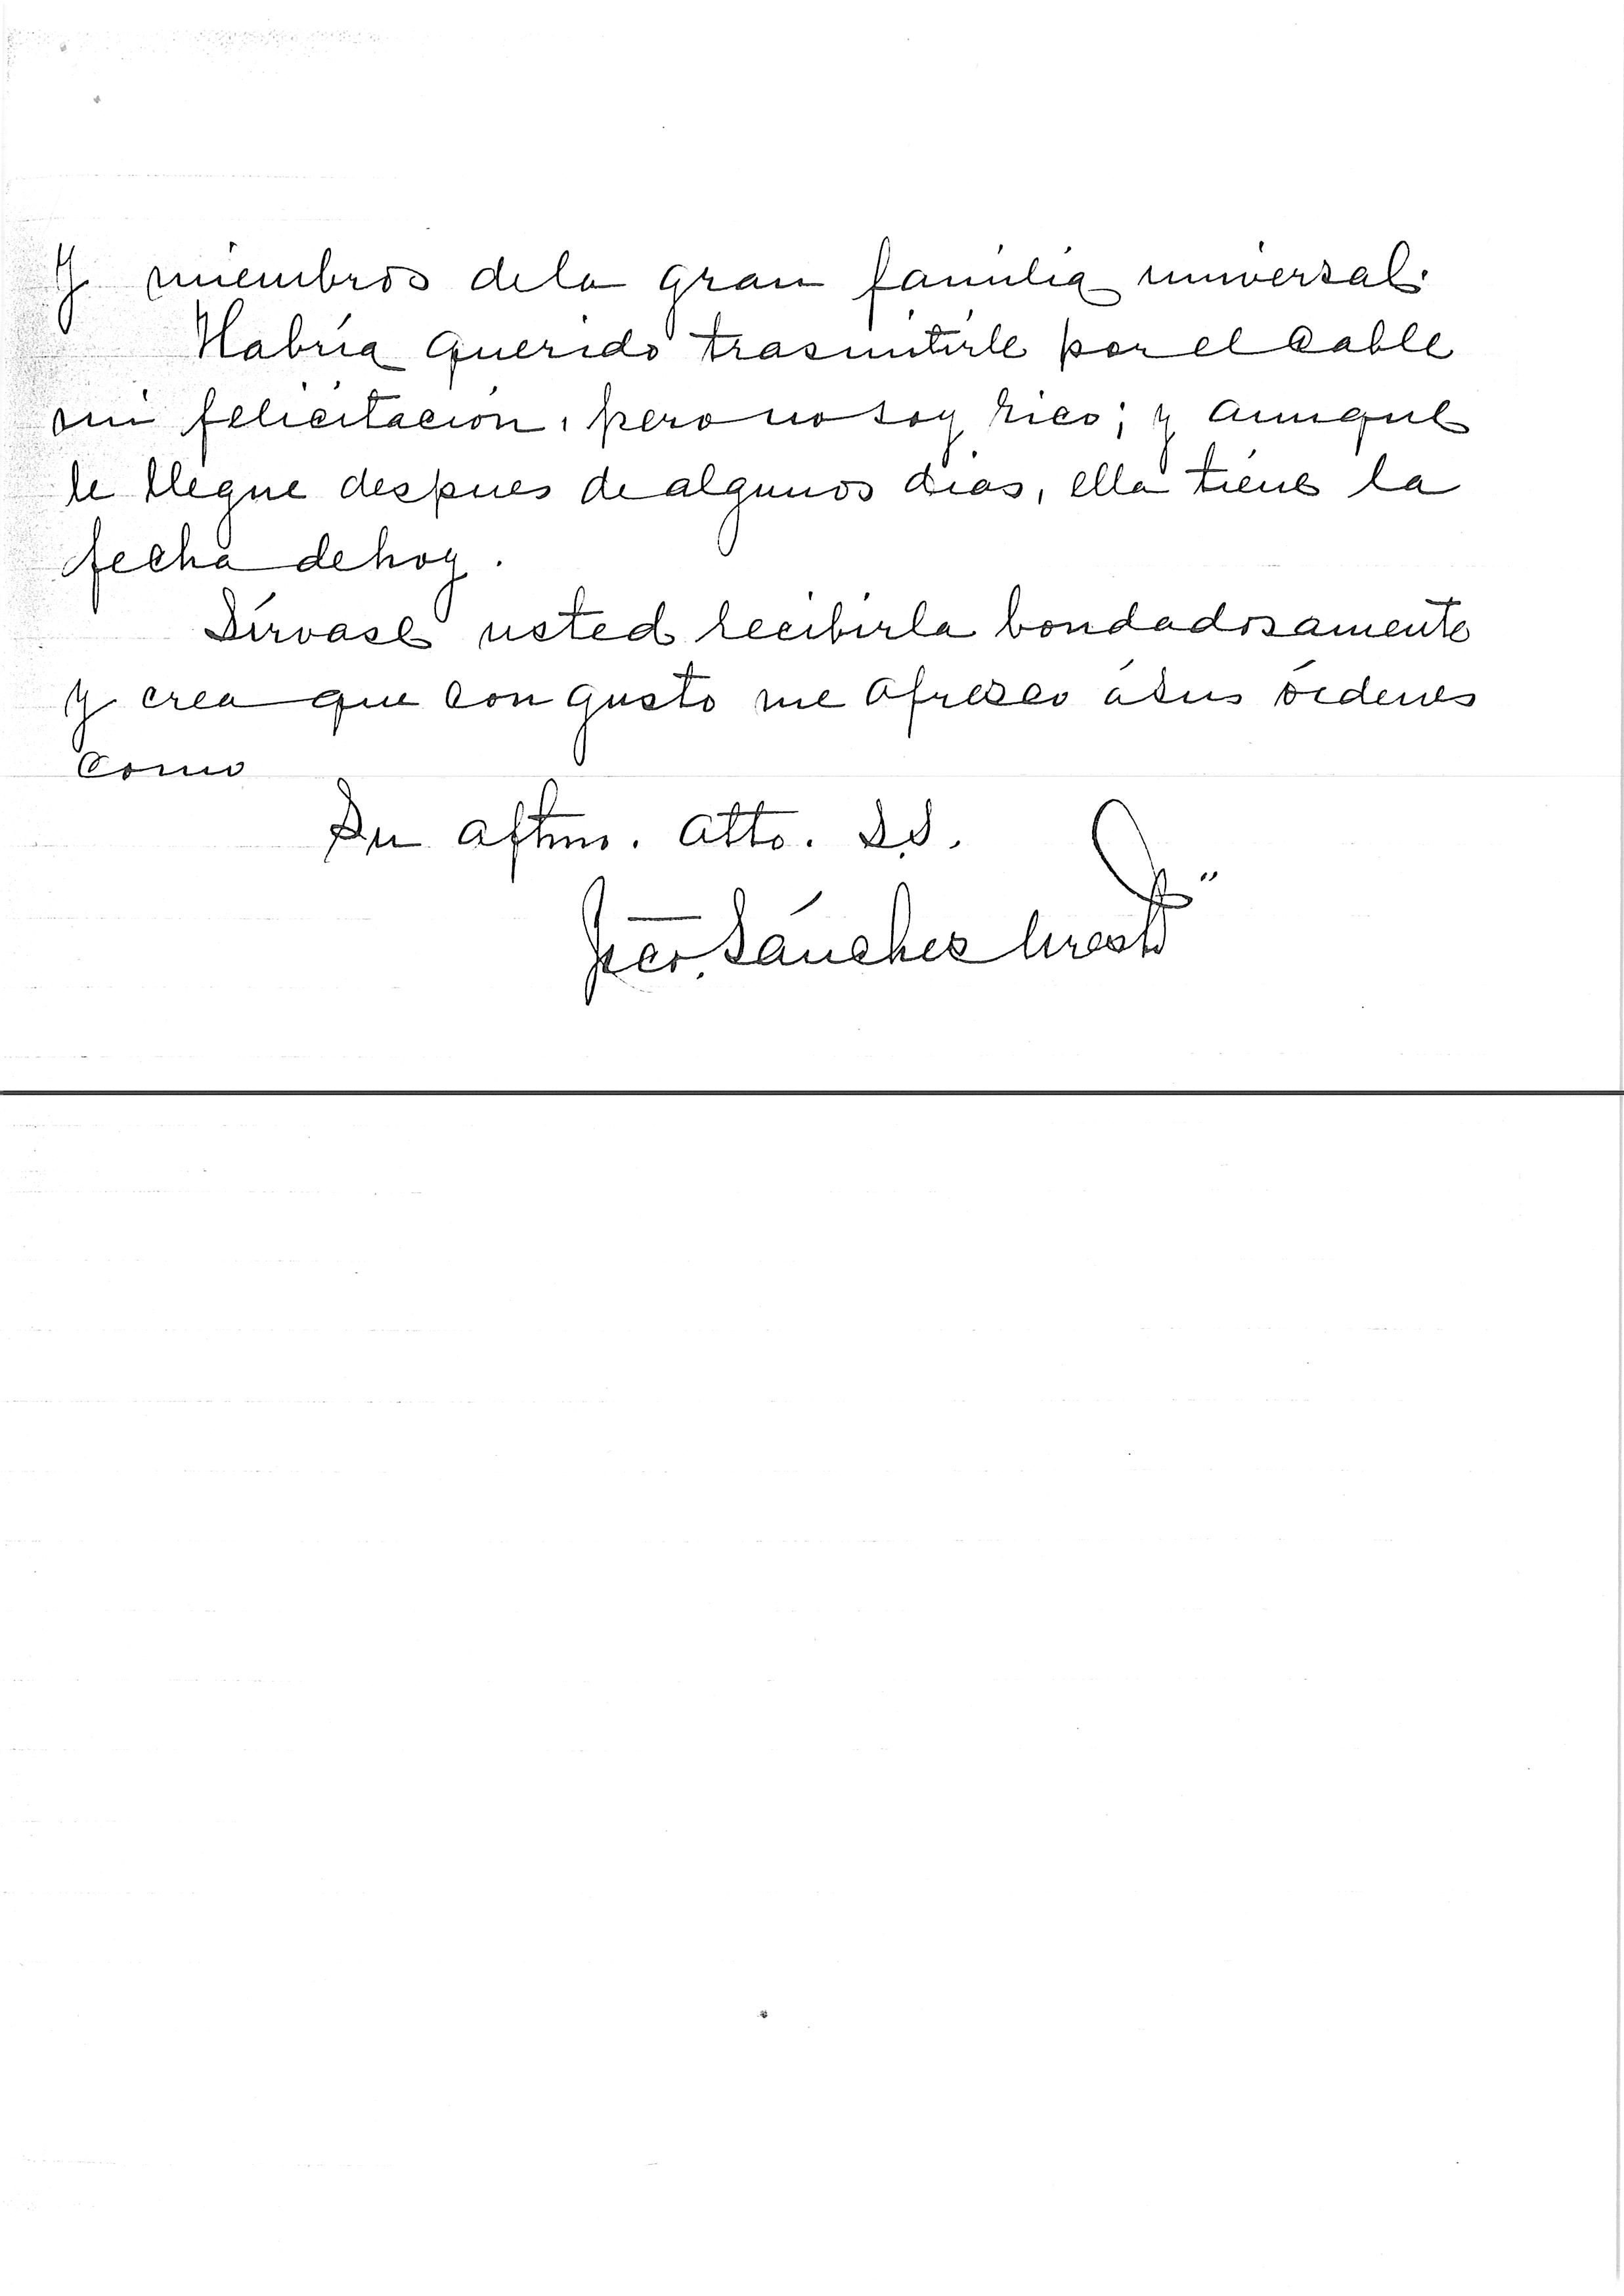 y miembros de la gran familia universal.
Habría querido trasmitirle por el cable
mi felicitación, pero no soy rico; y aunque
le llegue despues de algunos dias, ella tiene la
fecha de hoy.
Sírvase usted recibirla bondadosamente
y crea que con gusto me ofrezco á sus órdenes
como
Su aftmo. atto. S.S.
Fco. Sánchez